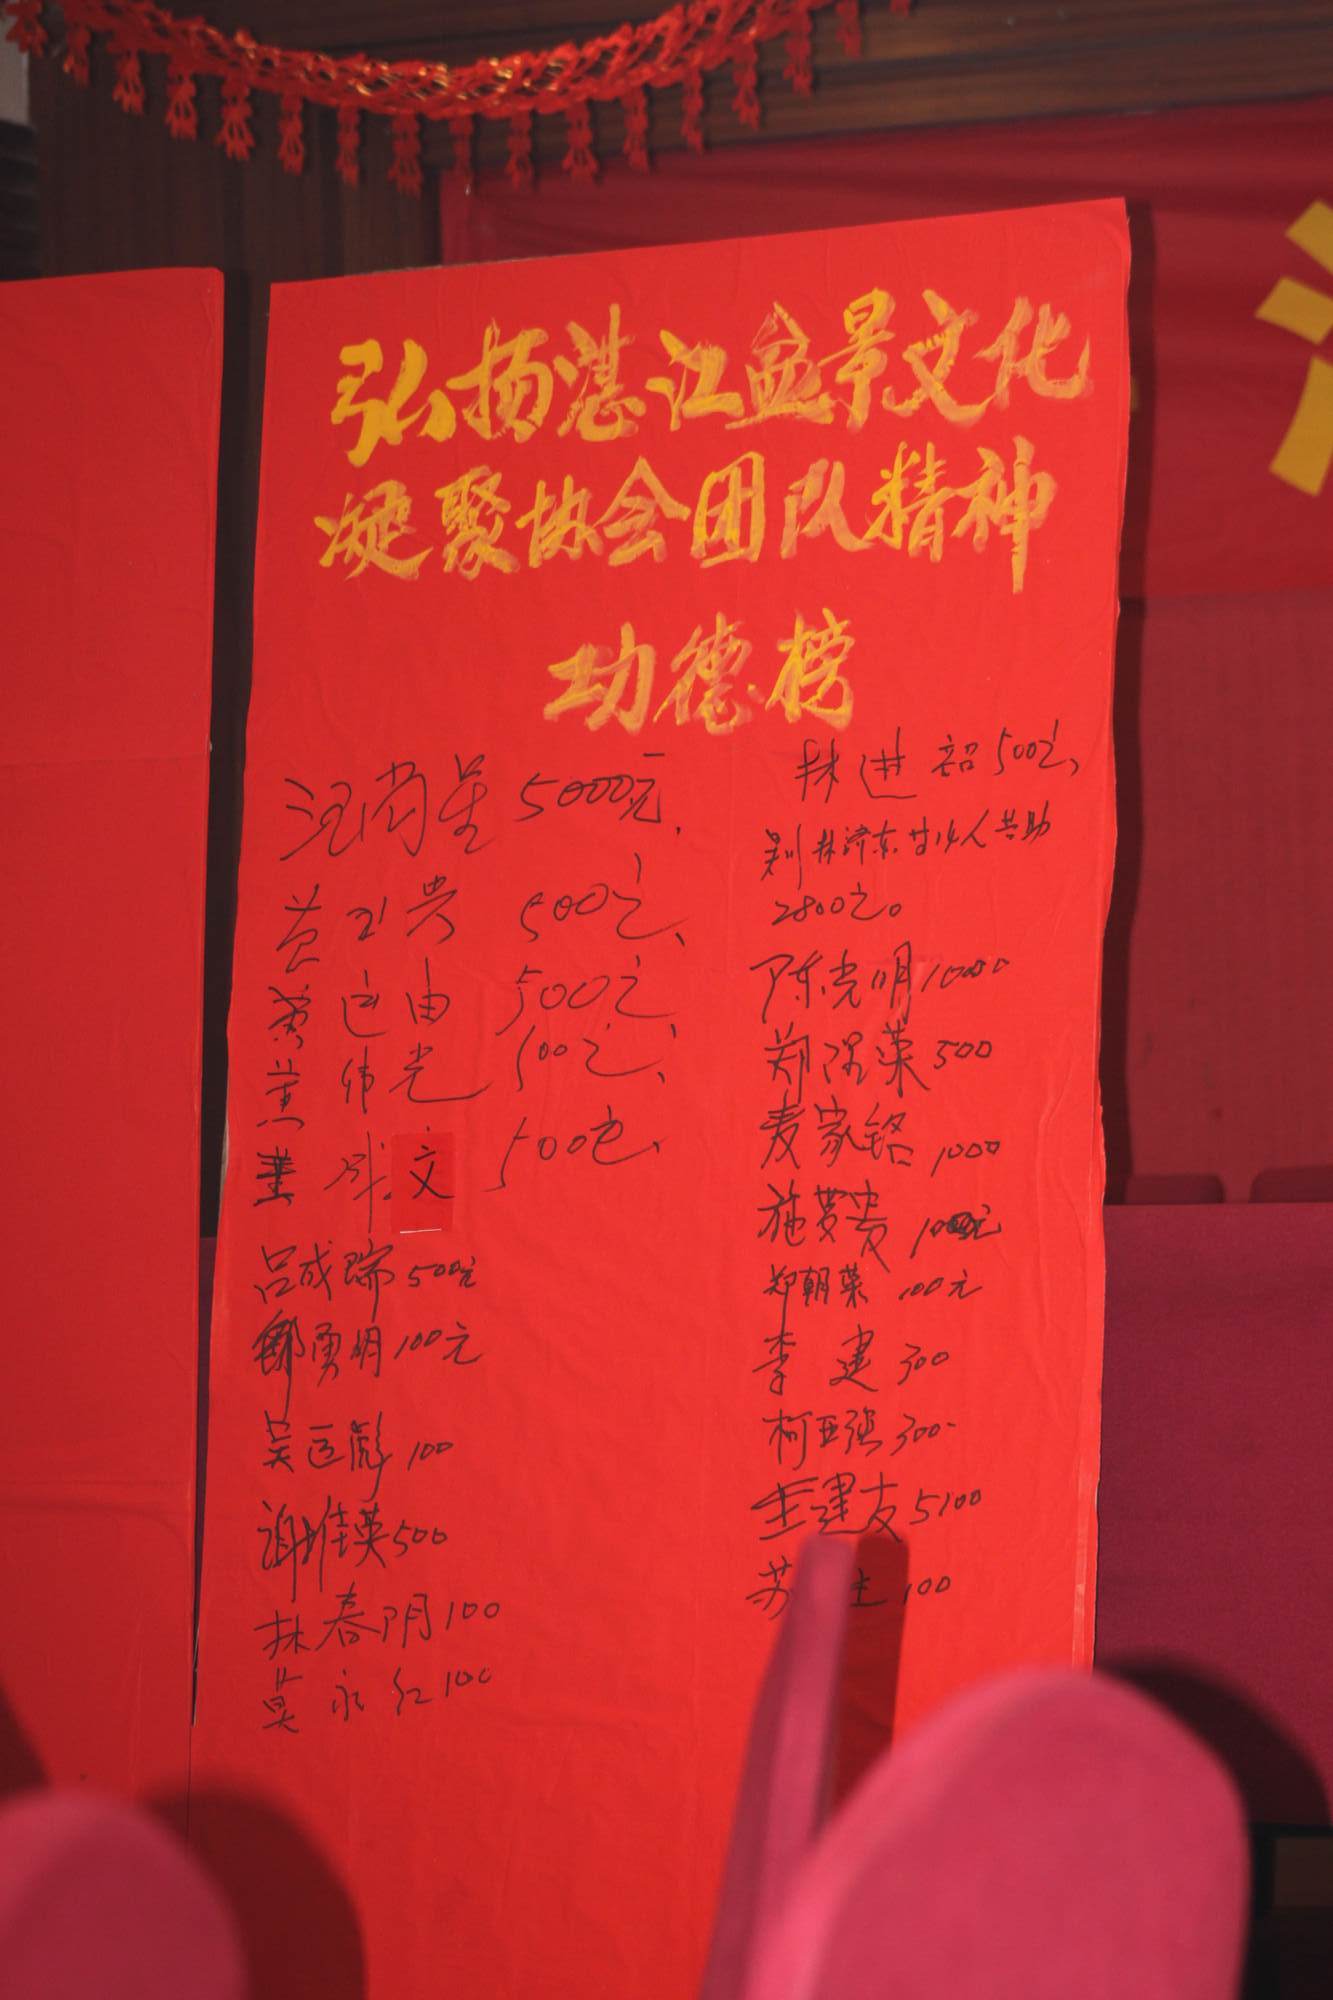 弘扬湛江盆景文化
凝聚协会团队精神
功德榜
汪尚星 5000元、
黄卫兴 500元、
黄运由 500元、
黄伟光 500元、
黄 文 500元、
吕成瑞 500元
勇明 100元
吴匡彪 100
谢堆英 500
林春阴 100
莫永红 100
林进韶 500元、
林济东廿 人共助
2800元。
陈光明 1000
郑 荣 500
麦家铭 1000
施梦贵 100元
郑朝荣 100元
李建 300
柯亚强 300
王建友 5100
苏 生 100